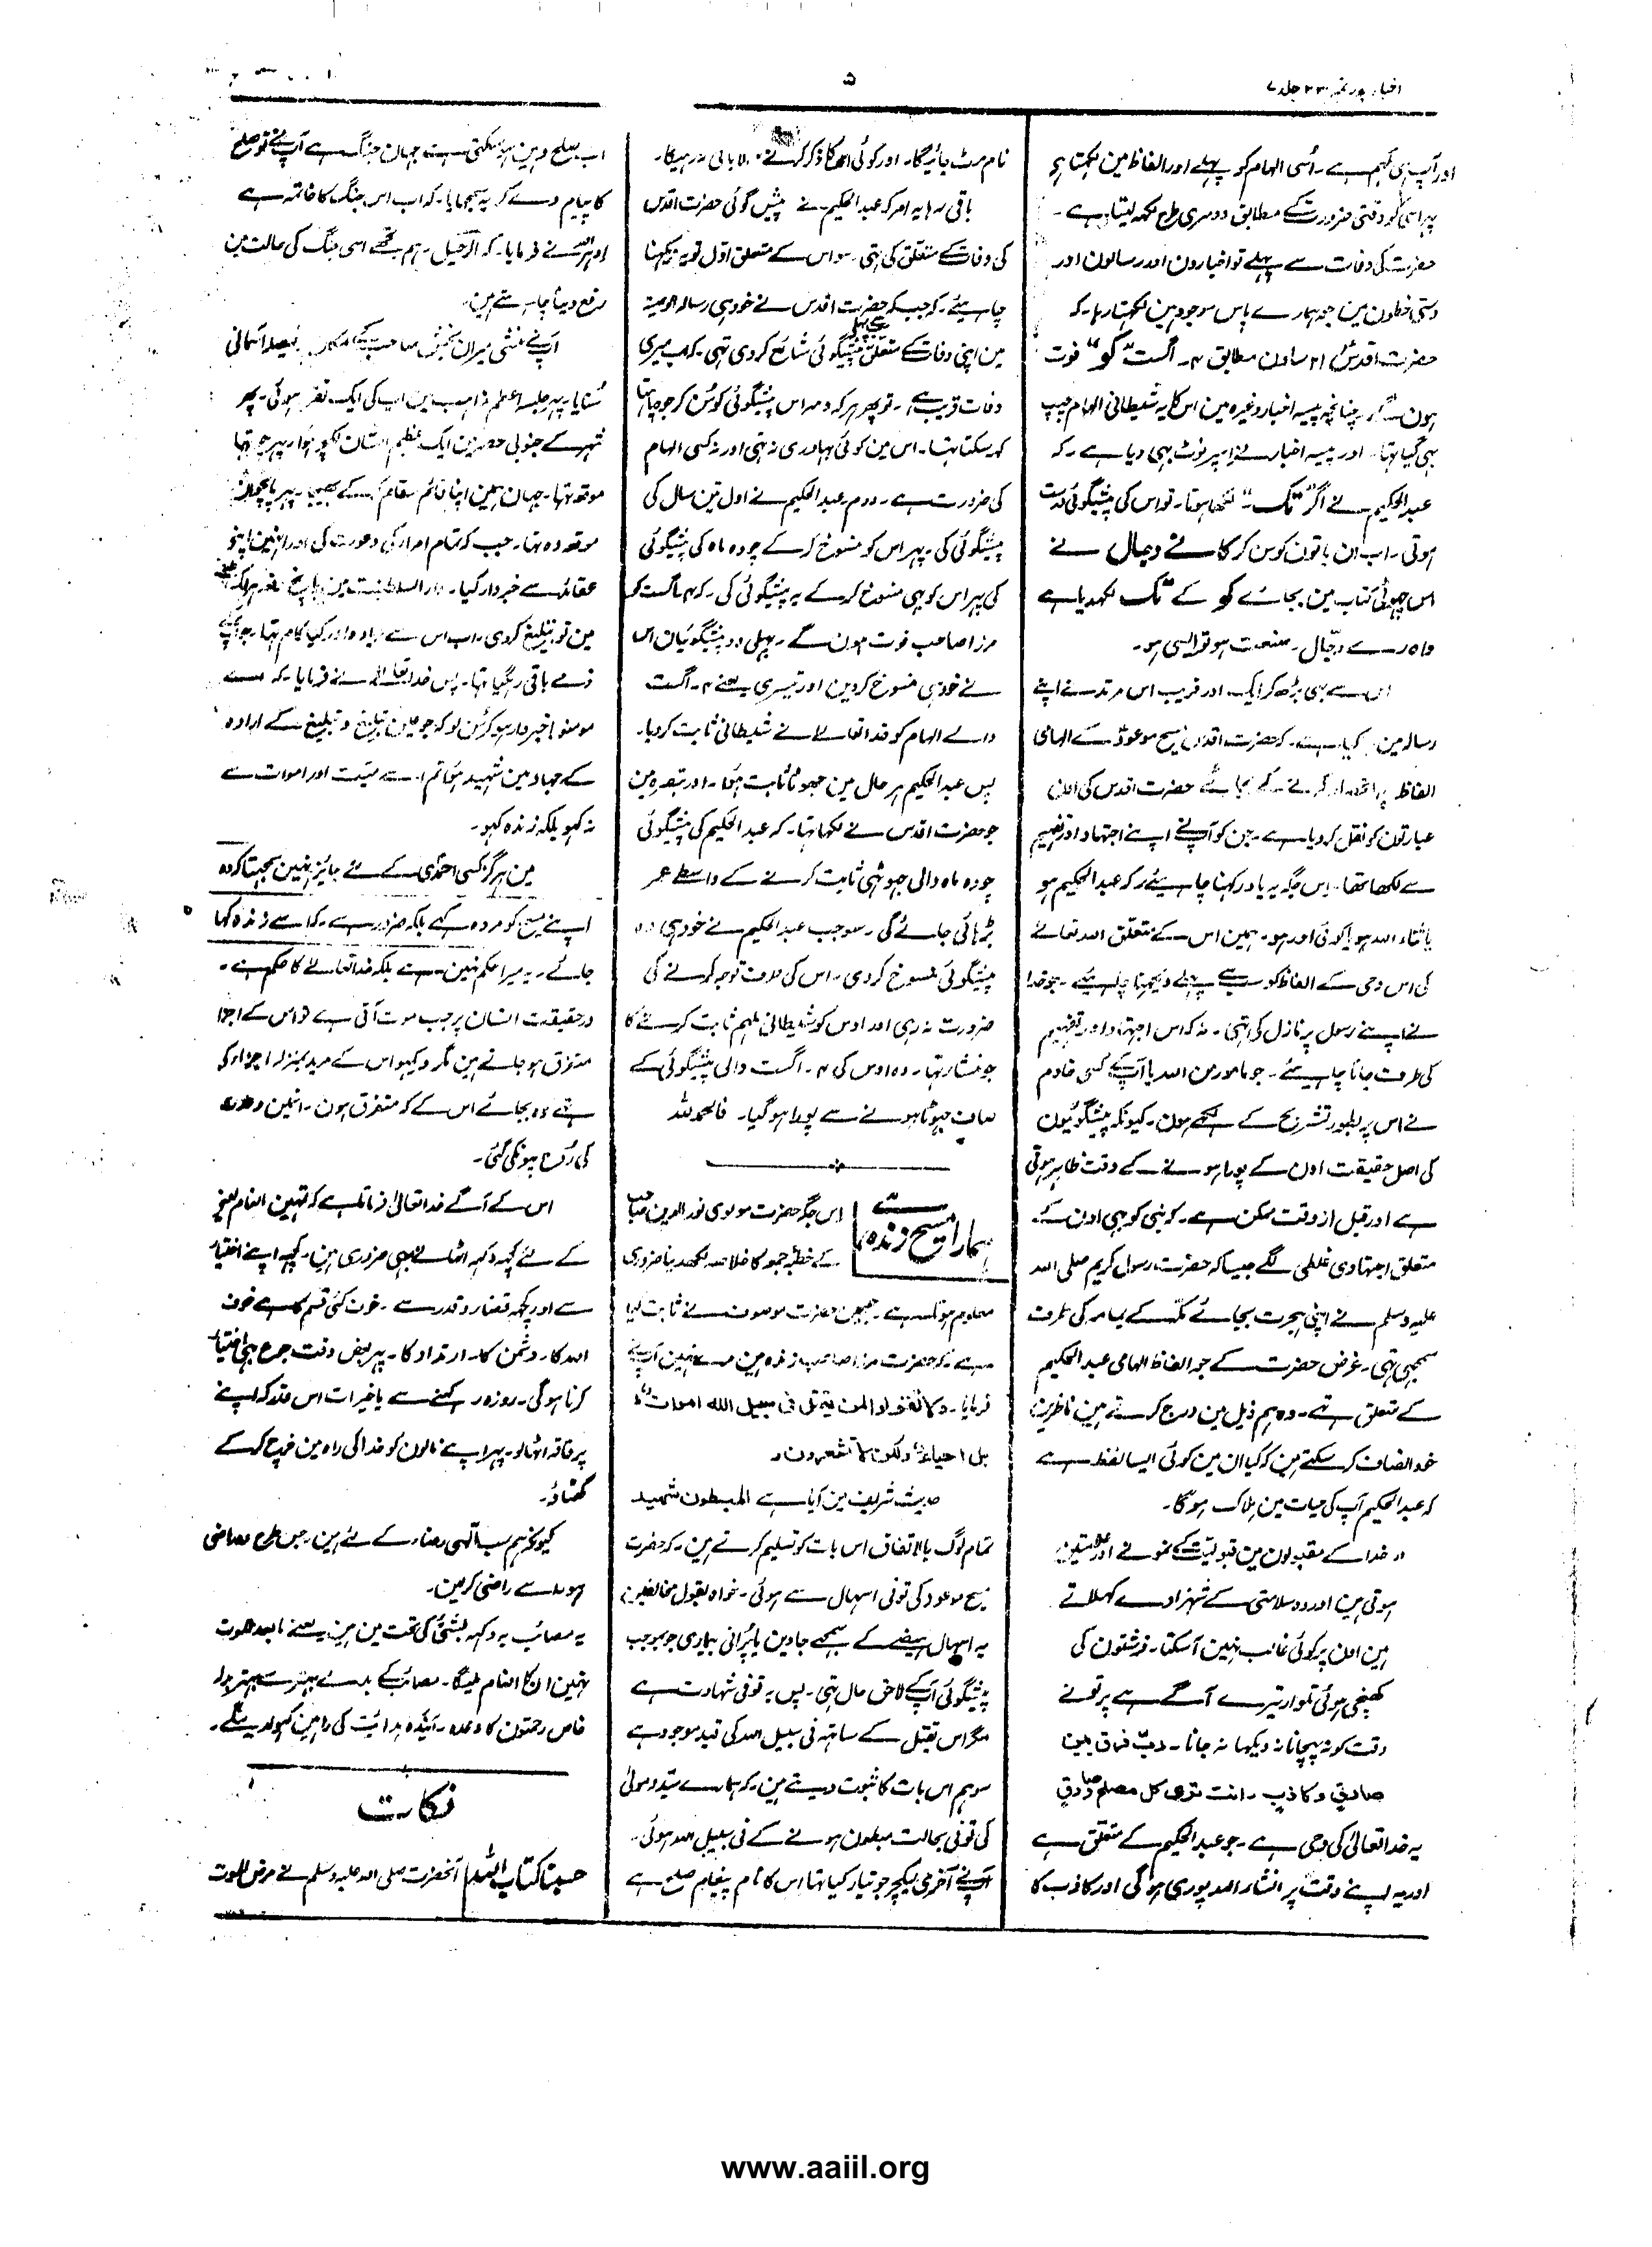 اخبار بدر نمبر ۲۳ جلد ۷
۵
اور آپ ہی ہے ۔ اُسی الہام کو پہلے اور الفاظ مین لکھتا ہے
پہر اسی کو وقتی ضرورت کے مطابق دوسری طرح لکھ لیتا ہے ۔
حضرت کی وفات سے پہلے تو اخبارون اور رسالون اور
دستی خطون مین جو ہمارے پاس موجود ہین لکھتا رہا ۔ کہ
حضرت اقدس ۲۱ ساون مطابق ۴ ۔ اگست ” کو “ فوت
ہون گے ۔ چنانچہ پیسہ اخبار وغیرہ مین اس کا یہ شیطانی الہام چھپ
بہی گیا تہا ۔ اور پیسہ اخبار نے اسپر نوٹ بہی دیا ہے ۔ کہ
عبدالحکیم نے اگر ” تک “ لکھا ہوتا ۔ تو اس کی پیشگوئی درست
ہوتی ۔ اب ان باتون کو سن کر کانے دجال نے
اس چہوٹی کتاب مین بجائے کو کے تک لکھدیا ہے
واہ رے دجّال ۔ صنعت ہو تو ایسی ہو ۔
اس سے بہی بڑھ کر ایک اور فریب اس مرتد نے اپنے
رسالہ مین کیا ہے ۔ کہ حضرت اقدس مسیح موعودؑ کے الہامی
الفاظ پر انحصار کرنے کے بجائے حضرت اقدس کی اون
عبارتون کو نقل کر دیا ہے ۔ جن کو آپنے اپنے اجتہاد اور تفہیم
سے لکھا تھا ۔ اس جگہ یہ یاد رکہنا چاہیئے کہ عبدالحکیم ہو
یا ثناء اللہ ہو یا کوئی اور ہو ۔ ہمین اس کے متعلق اللہ تعالےٰ
کی اس وحی کے الفاظ کو سب سے پہلے دیکہنا چاہیئے ۔ جو خدا
نے اپنے رسول پر نازل کی تہی ۔ نہ کہ اس اجتہاد اور تفہیم
کی طرف جانا چاہیئے ۔ جو مامور من اللہ یا آپکے کسی خادم
نے اس پر بطور تشریح کے لکھے ہون ۔ کیونکہ پیشگوئیون
کی اصل حقیقت اون کے پورا ہونے کے وقت ظاہر ہوتی
ہے اور قبل از وقت ممکن ہے ۔ کہ نبی کو بہی اون کے
متعلق اجتہادی غلطی لگے جیسا کہ حضرت رسول کریم صلی اللہ
علیہ وسلم نے اپنی ہجرت بجائے مکہ کے یمامہ کی طرف
سمجہی تہی ۔ غرض حضرت کے جو الفاظ الہامی عبدالحکیم
کے متعلق تہے ۔ وہ ہم ذیل مین درج کرتے ہین ناظرین
خود انصاف کر سکتے ہین کہ کیا ان مین کوئی ایسا لفظ ہے
کہ عبدالحکیم آپ کی حیات مین ہلاک ہوگا ۔
” خدا کے مقبولون مین قبولیت کے نمونے اور علامتین
ہوتی ہین اور وہ سلامتی کے شہزادے کہلاتے
ہین اون پر کوئی غالب نہین آ سکتا ۔ فرشتون کی
کھینچی ہوئی تلوار تیرے آگے ہے پر تونے
وقت کو نہ پہچانا نہ دیکہا نہ جانا ۔ ربّ فرّق بین
صادقٍ وکاذبٍ ۔ انت ترٰی کل مصلح وصادق
یہ خدا تعالیٰ کی وحی ہے ۔ جو عبدالحکیم کے متعلق ہے
اور یہ اپنے وقت پر انشاء اللہ پوری ہوگی اور کاذب کا
نام مٹ جائیگا ۔ اور کوئی اس کا ذکر کرنے والا باقی نہ رہیگا ۔
باقی رہا یہ امر کہ عبدالحکیم نے پیش گوئی حضرت اقدس
کی وفات کے متعلق کی تہی ۔ سو اس کے متعلق اوّل تو یہ دیکہنا
چاہیئے ۔ کہ جب کہ حضرت اقدس نے خود ہی رسالہ الوصیۃ
مین اپنی وفات کے متعلق پہلے ہی پیشگوئی شائع کر دی تہی ۔ کہ اب میری
وفات قریب ہے ۔ تو پھر ہر کہ و مہ اس پیشگوئی کو سُن کر جو چاہتا
کہہ سکتا تہا ۔ اس مین کوئی بہادری نہ تہی اور نہ کسی الہام
کی ضرورت ہے ۔ دوم عبدالحکیم نے اول تین سال کی
پیشگوئی کی ۔ پہر اس کو منسوخ کر کے چودہ ماہ کی پیشگوئی
کی پہر اس کو بہی منسوخ کر کے یہ پیشگوئی کی ۔ کہ ۴ ۔ اگست کو
مرزا صاحب فوت ہون گے ۔ پہلی دو پیشگوئیان اس
نے خود ہی منسوخ کر دین اور تیسری یعنے ۴ ۔ اگست
والے الہام کو خدا تعالےٰ نے شیطانی ثابت کر دیا ۔
پس عبدالحکیم ہر حال مین جھوٹا ثابت ہوا ۔ اور تبصرہ مین
جو حضرت اقدس نے لکھا تہا ۔ کہ عبدالحکیم کی پیشگوئی
چودہ ماہ والی جہوٹی ثابت کرنے کے واسطے عمر
بڑہائی جائے گی ۔ سو جب عبدالحکیم نے خود ہی وہ
پیشگوئی منسوخ کر دی ۔ اس کی طرف توجہ کرنے کی
ضرورت نہ رہی اور اوس کو شیطانی ملہم ثابت کرنے کا
جو منشاء تہا ۔ وہ اوس کی ۴ ۔ اگست والی پیشگوئی کے
صاف جہوٹا ہونے سے پورا ہو گیا ۔ فالحمد للہ
ہمارا مسیح زندہ ہے
اس جگہ حضرت مولوی نور الدین صاحب
کے خطبہ جمعہ کا خلاصہ لکھدینا ضروری
معلوم ہوتا ہے ۔ جسمین حضرت موصوف نے ثابت کیا
ہے کہ حضرت مرزا صاحب زندہ ہین آپنے
فرمایا ۔ ولا تقولوا لمن یقتل فی سبیل اللہ اموات
بل احیاءٌ ولکن لا تشعرون ۔
حدیث شریف مین آیا ہے المبطون شہید
تمام لوگ بالاتفاق اس بات کو تسلیم کرتے ہین ۔ کہ حضرت
مسیح موعود کی توفی اسہال سے ہوئی ۔ خواہ بقول مخالفین
یہ اسہال ہیضے کے سمجھے جاوین یا پُرانی بیماری جو بموجب
پیشگوئی آپکے لاحق حال تہی ۔ پس یہ توفی شہادت ہے
مگر اس یقتل کے ساتہہ فی سبیل اللہ کی قید موجود ہے
سو ہم اس بات کا ثبوت دیتے ہین ۔ کہ ہمارے سید و مولیٰ
کی توفی بحالت مبطون ہونے کے فی سبیل اللہ ہوئی ۔
آپنے آخری لیکچر جو تیار کیا تہا اس کا نام پیغام صلح ہے
اب صلح وہین ہو سکتی ہے جہان جنگ ہے آپنے تو صلح
کا پیام دے کر یہ سمجہایا ۔ کہ اب اس جنگ کا خاتمہ ہے
اور اللہ نے فرمایا ۔ کہ الرحیل ۔ ہم تجھے اسی جنگ کی حالت مین
رفع دینا چاہتے ہین ۔
آپنے منشی میران بخش صاحب کے مکان پر فیصلہ آسمانی
سُنایا ۔ پہر جلسہ اعظم مذاہب مین آپ کی ایک تقریر ہوئی ۔ پہر
شہر کے جنوبی حصہ مین ایک عظیم الشان لکچر ہوا ، پہر چوتہا
موقعہ تہا ۔ جہان ہمین اپنا قائم مقام کر کے بھیجا ۔ پہر پانچوان
موقعہ وہ تہا ۔ جب کہ تمام امراء کی دعوت کی اور انہین اپنے
عقائد سے خبردار کیا ۔ دار السلطنت مین پانچ دفعہ
مین تو تبلیغ کر دی ۔ اب اس سے زیادہ اور کیا کام تہا ۔ جو آپکے
ذمے باقی رہ گیا تہا ۔ پس خدا تعالےٰ نے فرمایا ۔ کہ اے
مومنو! خبردار ہو کر سُن لو کہ جو عین تبلیغ و تبلیغ کے ارادہ
کے جہاد مین شہید ہوا تم اسے میّت اور اموات سے
نہ کہو بلکہ زندہ کہو ۔
مین ہرگز کسی احمدی کے لئے جایز نہین سمجہتا کہ وہ
اپنے مسیح کو مردہ کہے بلکہ ضرور ہے ۔ کہ اسے زندہ کہا
جائے ۔ یہ میرا حکم نہین ہے بلکہ خدا تعالےٰ کا حکم ہے ۔
درحقیقت انسان پر جب موت آتی ہے تو اس کے اجزا
متفرق ہو جاتے ہین مگر دیکہو اس کے مرید بمنزلہ اجزاء کی
تہے وہ بجائے اس کے کہ متفرق ہون ۔ انہین وحدت
کی رُوح پہونکی گئی ۔
اس کے آگے خدا تعالیٰ فرماتا ہے کہ تمہین انعام لینے
کے لئے کچہہ دکہہ اٹہانے بہی ضروری ہین ۔ کچہہ اپنے اختیار
سے اور کچہہ قضاء و قدر سے ۔ خوف کئی قسم کا ہے خوف
اللہ کا ۔ دشمن کا ۔ ارتداد کا ۔ پہر بعض وقت جوع بہی اختیار
کرنا ہوگی ۔ روزہ رکہنے سے یا خیرات اس قدر کہ اپنے
پر فاقہ اٹہا لو ۔ پہر اپنے مالون کو خدا کی راہ مین خرچ کر کے
گھٹاؤ ۔
کیونکہ ہم سب الٰہی رضاء کے لئے ہین ۔ جس طرح وہ راضی
ہو اسے راضی کرین ۔
یہ مصائب یہ دکہہ بشئٍ کی تحت مین ہین یعنے مابعد الموت
تمہین ان کا انعام ملیگا ۔ مصائب کے بدلے بہتر سے بہتر بدلہ
خاص رحمتون کا وعدہ ۔ آیندہ ہدایت کی راہین کہولدینگے ۔
نکات
حسبنا کتاب اللہ
آنحضرت صلی اللہ علیہ وسلم نے مرض الموت
www.aaiil.org